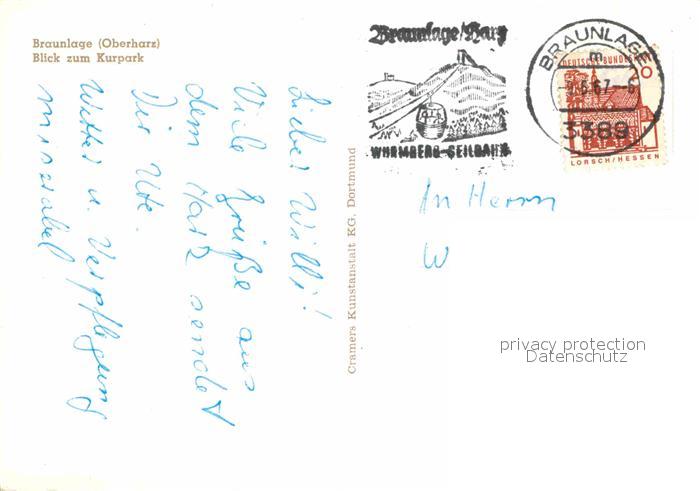 Braunlage (Oberharz)
Blick zum Kurpark
Lieber Willi!
Viele Grüße aus
dem Harz sendet
Dir Ute.
Wetter u. Verpflegung
miserabel
Cramers Kunstanstalt KG, Dortmund
Braunlage/Harz
WURMBERG-SEILBAHN
BRAUNLAGE
m
6.67-8
3389
DEUTSCHE BUNDESPOST
20
LORSCH/HESSEN
An Herrn
W
privacy protection
Datenschutz